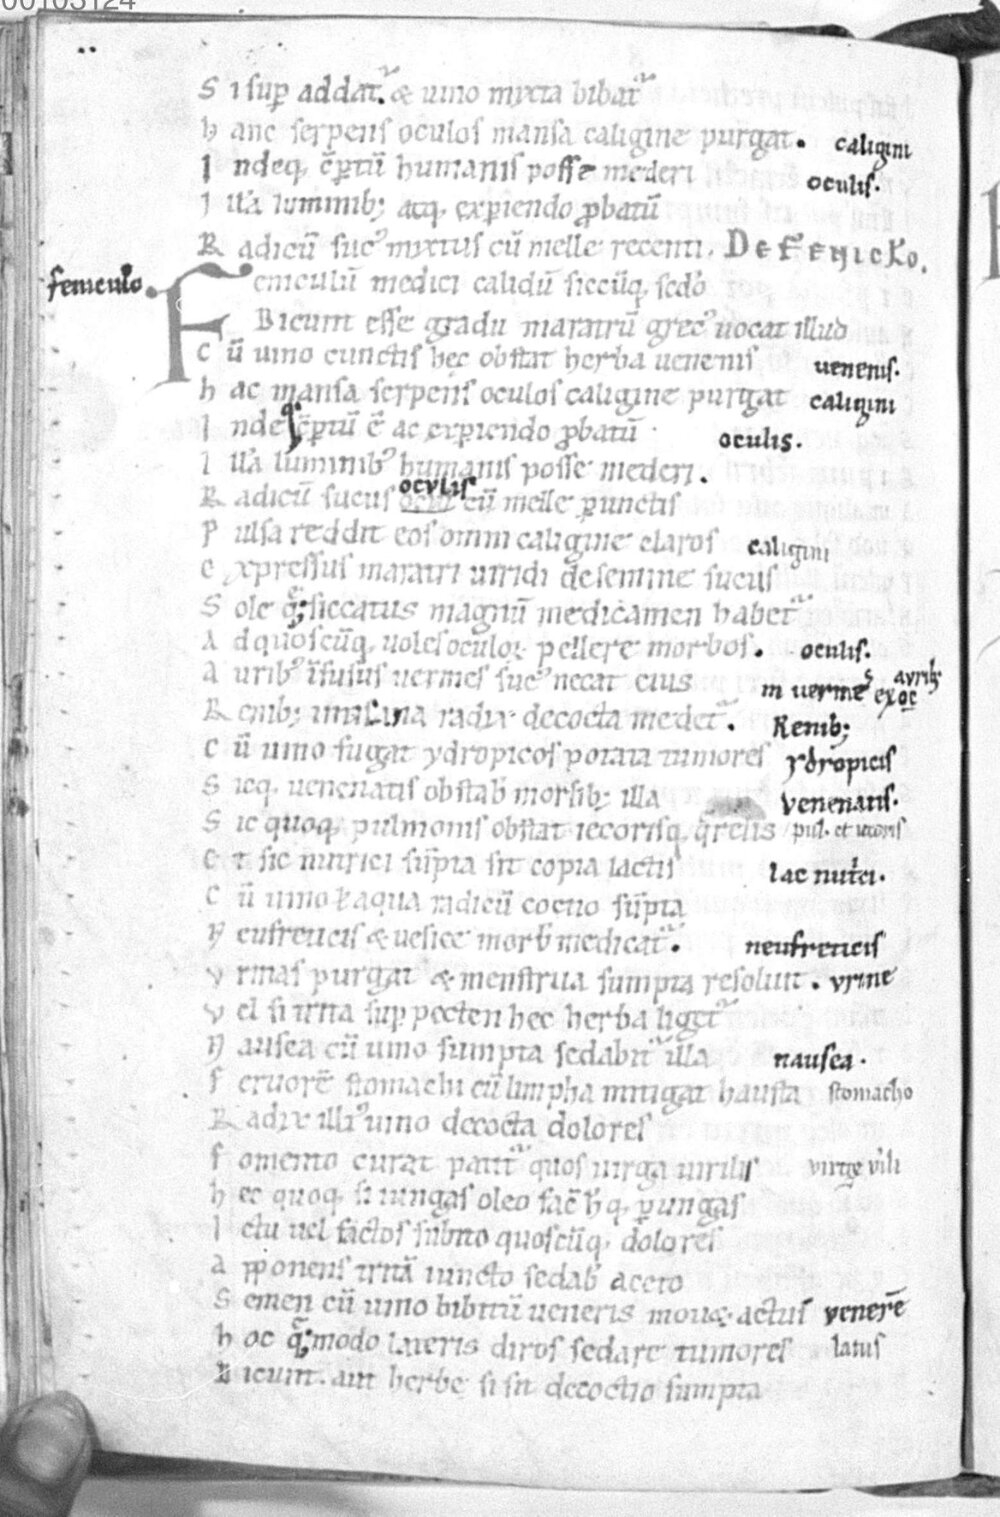 00103124
S i sup addat᷑. & uino mixta bibat᷑
h anc serpens oculos mansa caligine purgat. caligini
I ndeq; c̄ptū humanis posse mederi oculis.
I lla luminib; atq; expiendo pbatū
R adicū suc⁹ mixtus cū melle recenti. De fenicło.
feniculo. Feniculū medici calidū siccūq; sedō
Dicunt esse gradu maratrū grec⁹ uocat illud
C ū uino cunctis hec obstat herba uenenis uenenis.
h ac mansa serpens oculos caligine purgat caligini
I ndeq; c̄ptū ē ac expiendo pbatū oculis.
I lla luminib⁹ humanis posse mederi.
R adicū sucus oculis cū melle punctis
P ulsa reddit eos omni caligine claros caligini
E xpressus maratri uiridi de semine sucus
S ole q; siccatus magnū medicamen habet᷑
A d quoscūq; uoles oculoꝝ pellere morbos. oculis.
A urib⁹ īfusus uermes suc⁹ necat eius in vermes aurib;
R enib; radix decocta medet᷑. Renib;
C ū uino fugat ydropicos potata tumores ydropicis
S icq; uenenatis obstab̄ morsib; illa venenatis.
S ic quoq; pulmonis obstat iecorisq; q̄relis pul. et
E t sic nutrici sūpta sit copia lactis lac nut̄ci.
C ū uino t̄ aqua radicū coctio sūpta
N eufreticis & uesice morb̄ medicat᷑. neufreticis
V rinas purgat & menstrua sumpta resoluit. vrine
V el si trita sup pecten hec herba liget᷑
N ausea cū uino sumpta sedabit᷑ illa nausea.
F eruorē stomachi cū limpha mitigat hausta stomacho
R adix illi⁹ uino decocta dolores
F omento curat patit᷑ quos uirga uirilis virge vili
h ec quoq; si iungas oleo sac̄ hq; pungas
I ctu uel factos subito quoscūq; dolores
A pponens tritā iuncto sedab̄ aceto
S emen cū uino bibitū ueneris mouet actus venerē
h oc q; modo lateris diros sedare tumores latus
D icunt. aut herbe si sit decoctio sumpta